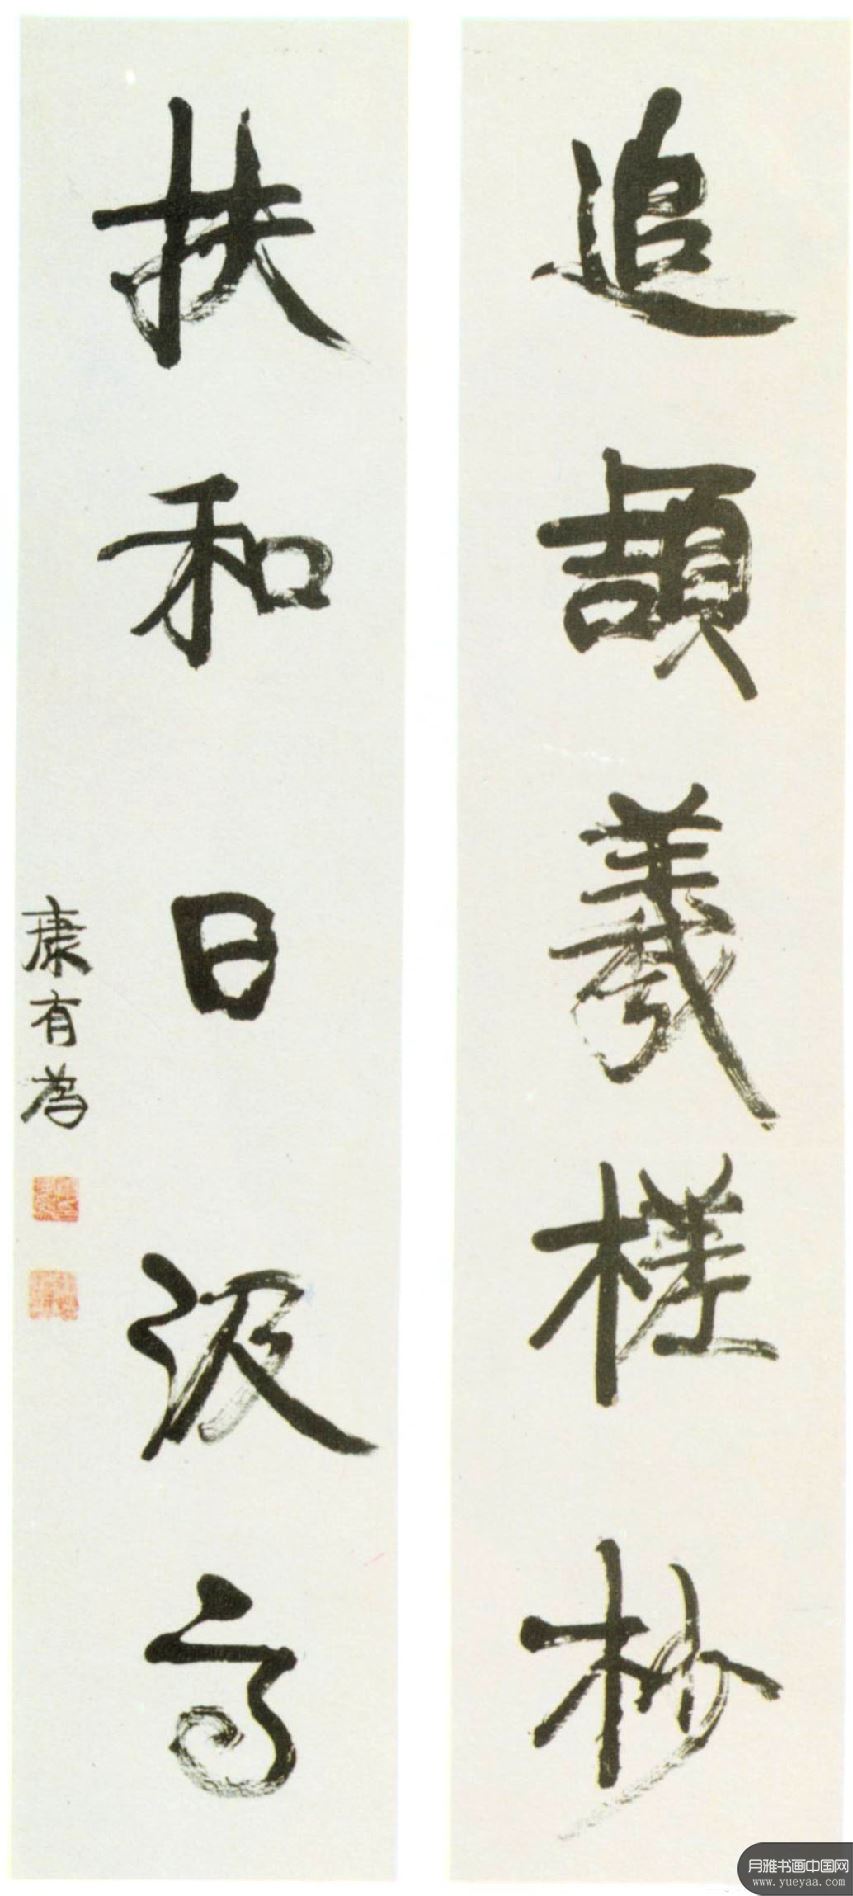 追頡羲槎杪
扶和日汲高
康有為
月雅书画中国网
www.yueyaa.com